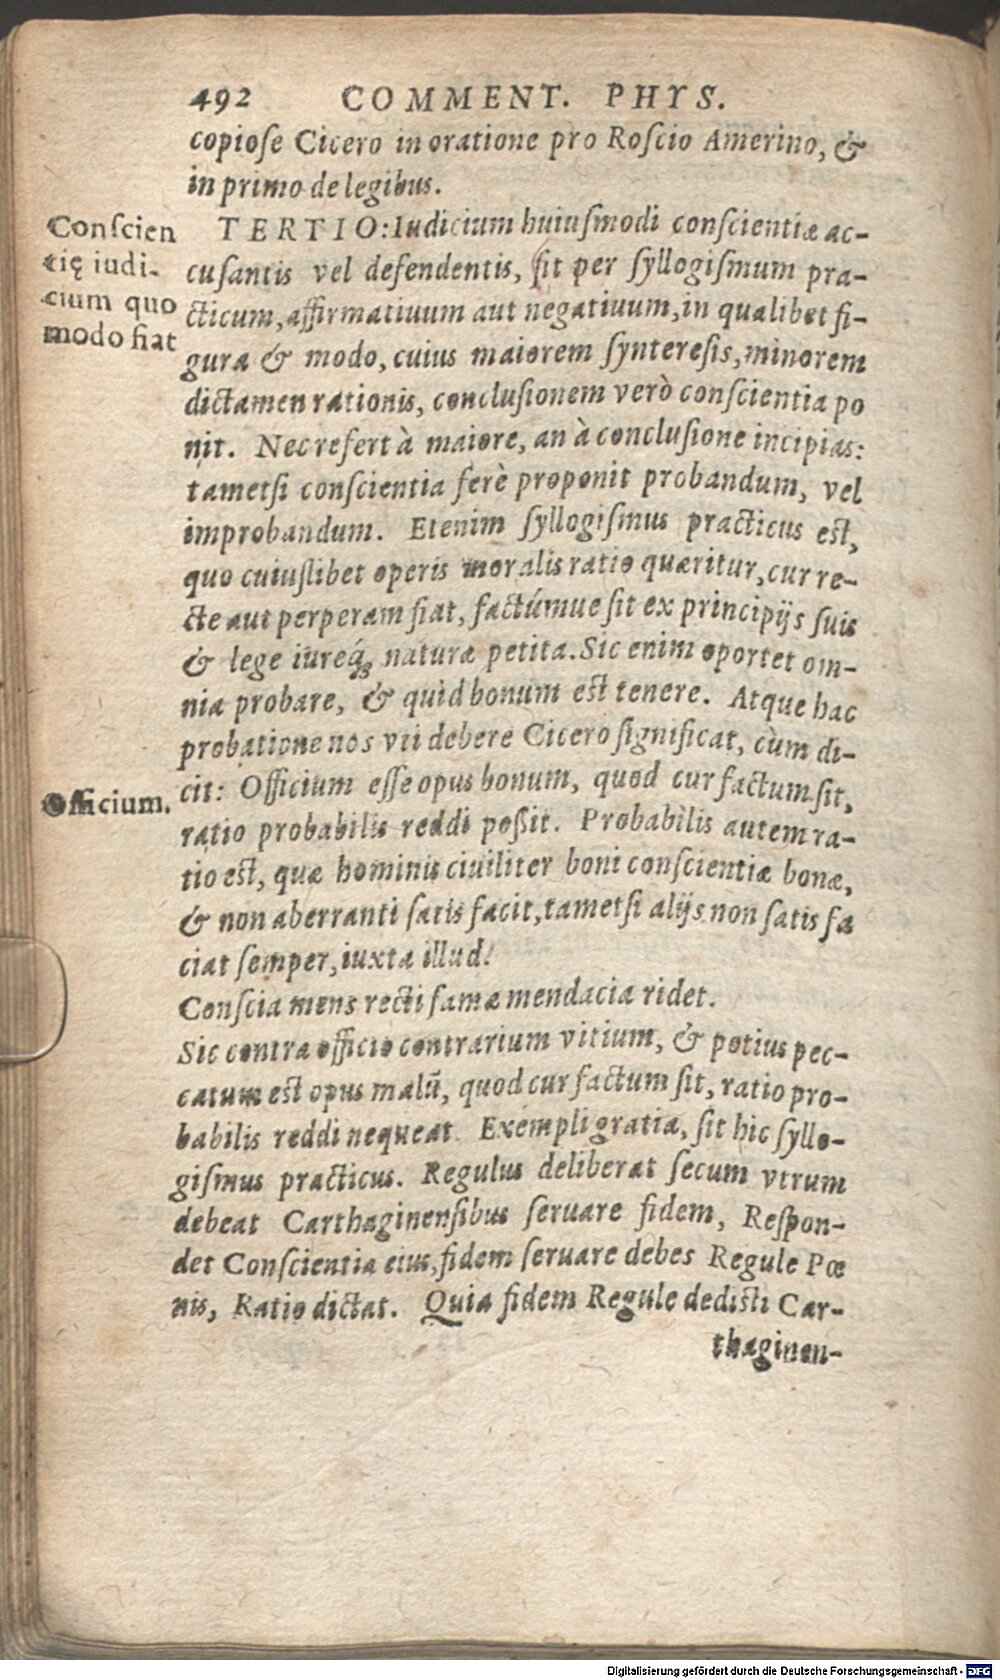 492 COMMENT. PHYS.
copiose Cicero in oratione pro Roscio Amerino, &
in primo de legibus.
Conscien
tię iudi-
cium quo
modo fiat
TERTIO: Iudicium huiusmodi conscientiæ ac-
cusantis vel defendentis, fit per syllogismum pra-
cticum, affirmatiuum aut negatiuum, in qualibet fi-
gura & modo, cuius maiorem synteresis, minorem
dictamen rationis, conclusionem verò conscientia po
nit. Nec refert à maiore, an à conclusione incipias:
tametsi conscientia ferè proponit probandum, vel
improbandum. Etenim syllogismus practicus est,
quo cuiuslibet operis moralis ratio quæritur, cur re-
cte aut perperam fiat, factúmue sit ex principijs suis
& lege iúreq́; naturæ petita. Sic enim oportet om-
nia probare, & quid bonum est tenere. Atque hac
probatione nos vti debere Cicero significat, cùm di-
Officium.
cit: Officium esse opus bonum, quod cur factum sit,
ratio probabilis reddi poßit. Probabilis autem ra-
tio est, quæ hominis ciuiliter boni conscientiæ bonæ,
& non aberranti satis facit, tametsi alijs non satis fa
ciat semper, iuxta illud:
Conscia mens recti famæ mendacia ridet.
Sic contra officio contrarium vitium, & potius pec-
catum est opus malū, quod cur factum sit, ratio pro-
babilis reddi nequeat. Exempli gratia, sit hic syllo-
gismus practicus. Regulus deliberat secum vtrum
debeat Carthaginensibus seruare fidem, Respon-
det Conscientia eius, fidem seruare debes Regule Pœ
nis, Ratio dictat. Quia fidem Regule dedisti Car-
thaginen-
Digitalisierung gefördert durch die Deutsche Forschungsgemeinschaft - DFG